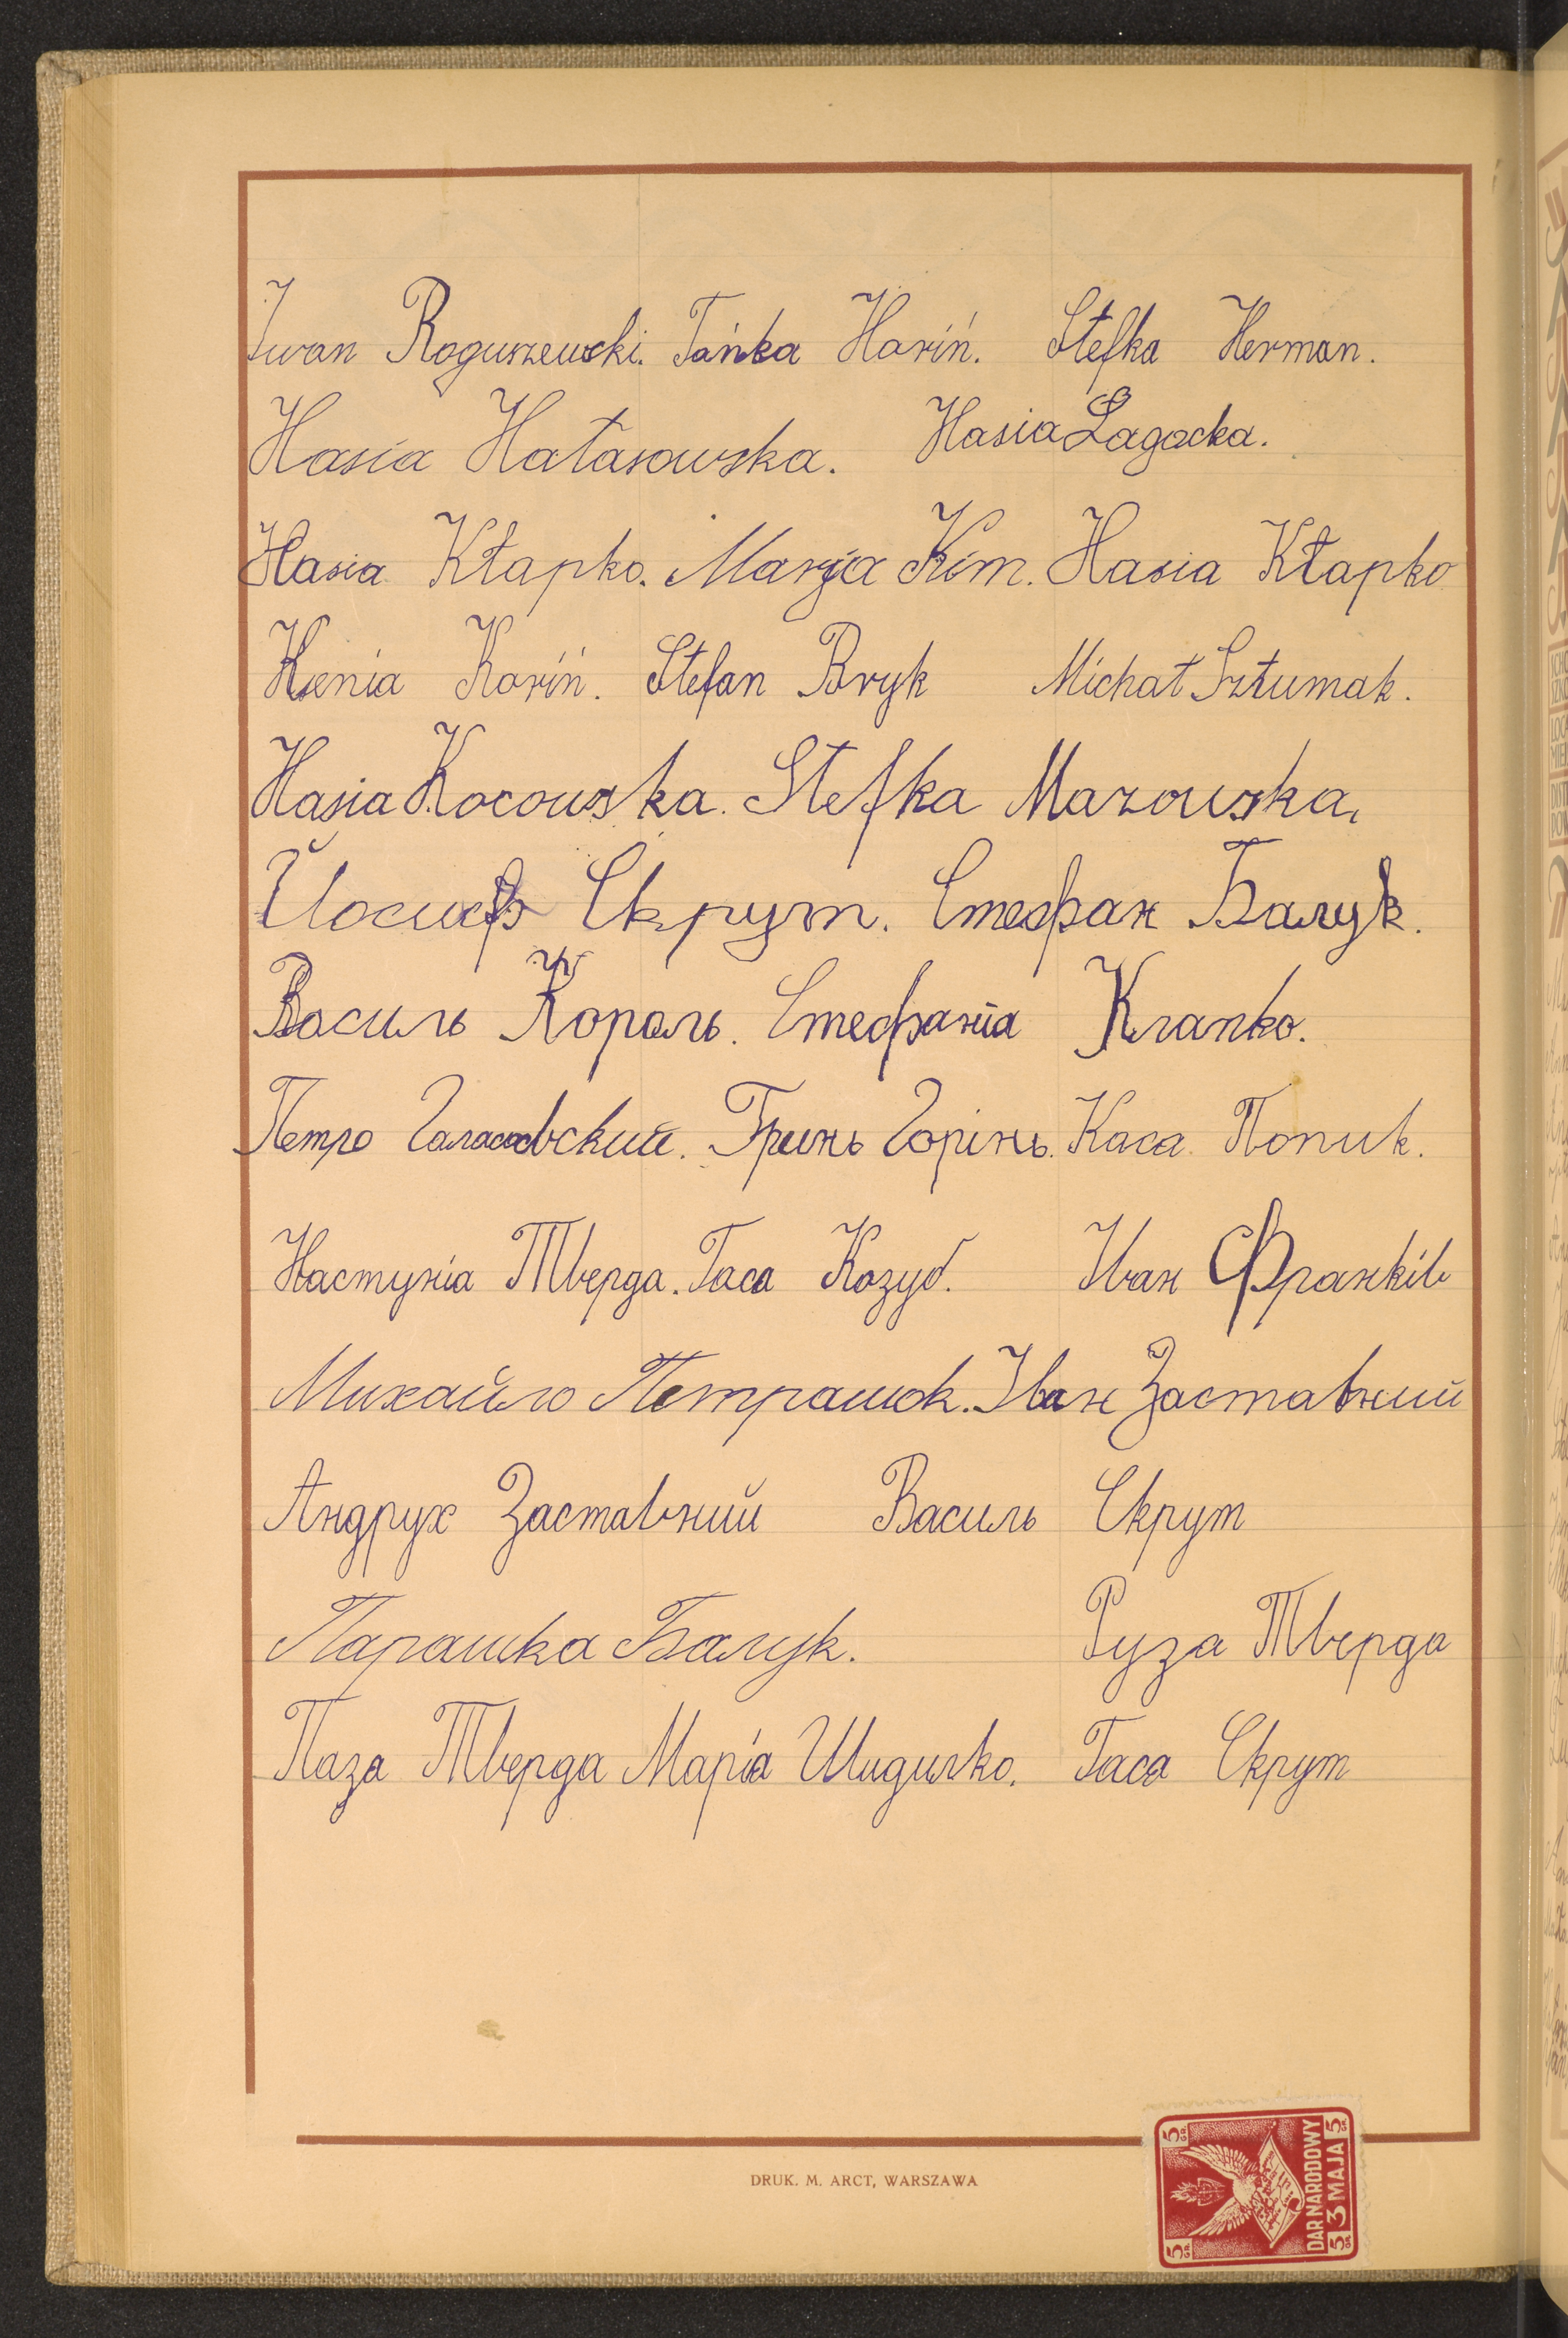 Iwan Roguszewski. Tańka Horiń. Stefka Herman.
Hasia Hałasowska. Hasia Łagocka.
Hasia Kłapko. Marja Kim. Hasia Kłapko
Ksenia Koriń. Stefan Bryk Michał Sztumak.
Hasia Kocowska. Stefka Mazowska,
Йосиф Скрут. Стефан Балук.
Василь Король. Стефанія Клапко.
Петро Галасовский. Гринь Горінь. Каса Попик.
Настуніа Тверда. Гаса Козуб. Иван Франків
Михайло Петрашок. Іван Заставний
Андрух Заставний Василь Скрут
Парашка Балук. Руза Тверда
Паза Тверда Маріа Шидилко. Гаса Скрут
DRUK. M. ARCT, WARSZAWA
5 GR 5 GR
DAR NARODOWY
5 GR 3 MAJA 5 GR